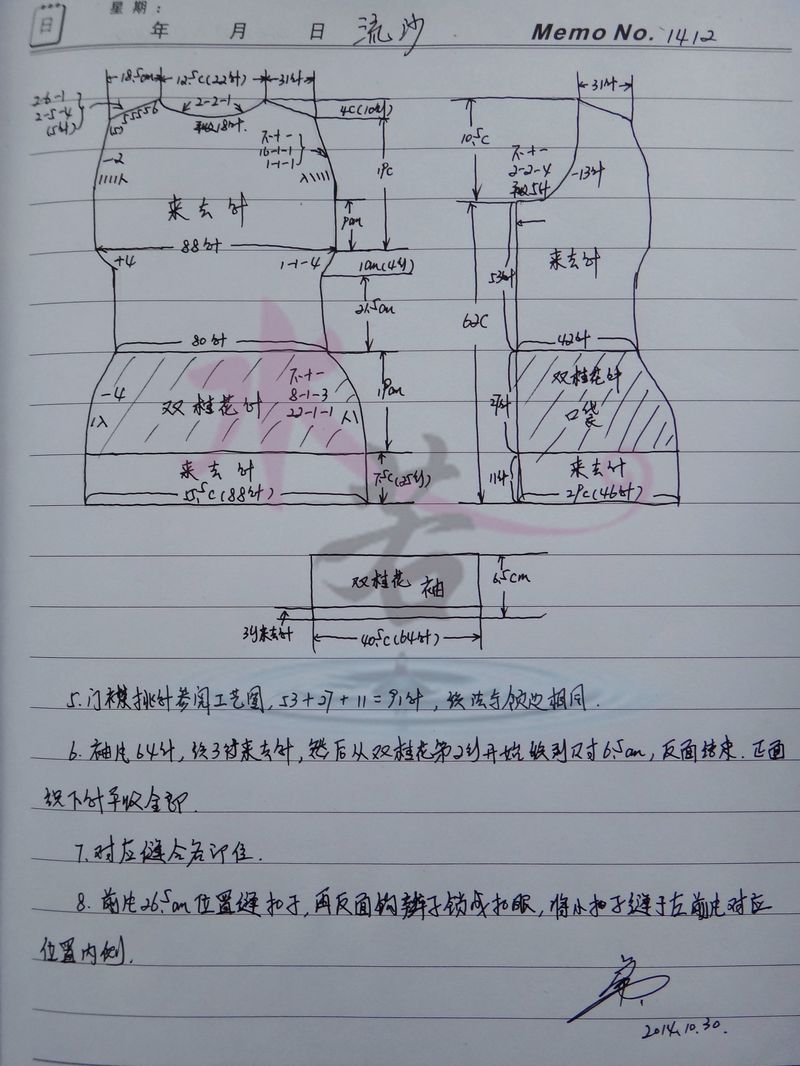 日
星期:
年 月 日 流沙 Memo No. 1412
18.5cm 12.5c(22针) 31针
2-6-1
2-5-4
(5针)
(5)55556
2-2-1
平收18针
4c(10行)
不十一
16-1-1
1-1-1
-2
19c
来去针
9cm
88针
+4
1-1-4
1cm(4行)
21.5cm
80针
-4
双桂花针
不十一
8-1-3
22-1-1
19cm
来去针
7.5c(25行)
55.5c(88针)
31针
10.5c
不十一
2-2-4
平收5针
-13针
来去针
53针
62c
42针
双桂花针
口袋
27针
11针
来去针
29c(46针)
双桂花 袖
6.5cm
3行来去针
40.5c(64针)
水若
5.门襟挑针参阅工艺图,53+27+11=91针,织法与领边相同.
6.袖片64针,织3行来去针,然后从双桂花第2行开始织到尺寸6.5cm,反面结束.正面
织下针平收全部.
7.对应缝合各部位.
8.前片26.5cm位置缝扣子,再反面钩辫子锁成扣眼,将小扣子缝于左前片对应
位置内侧.
2014.10.30.